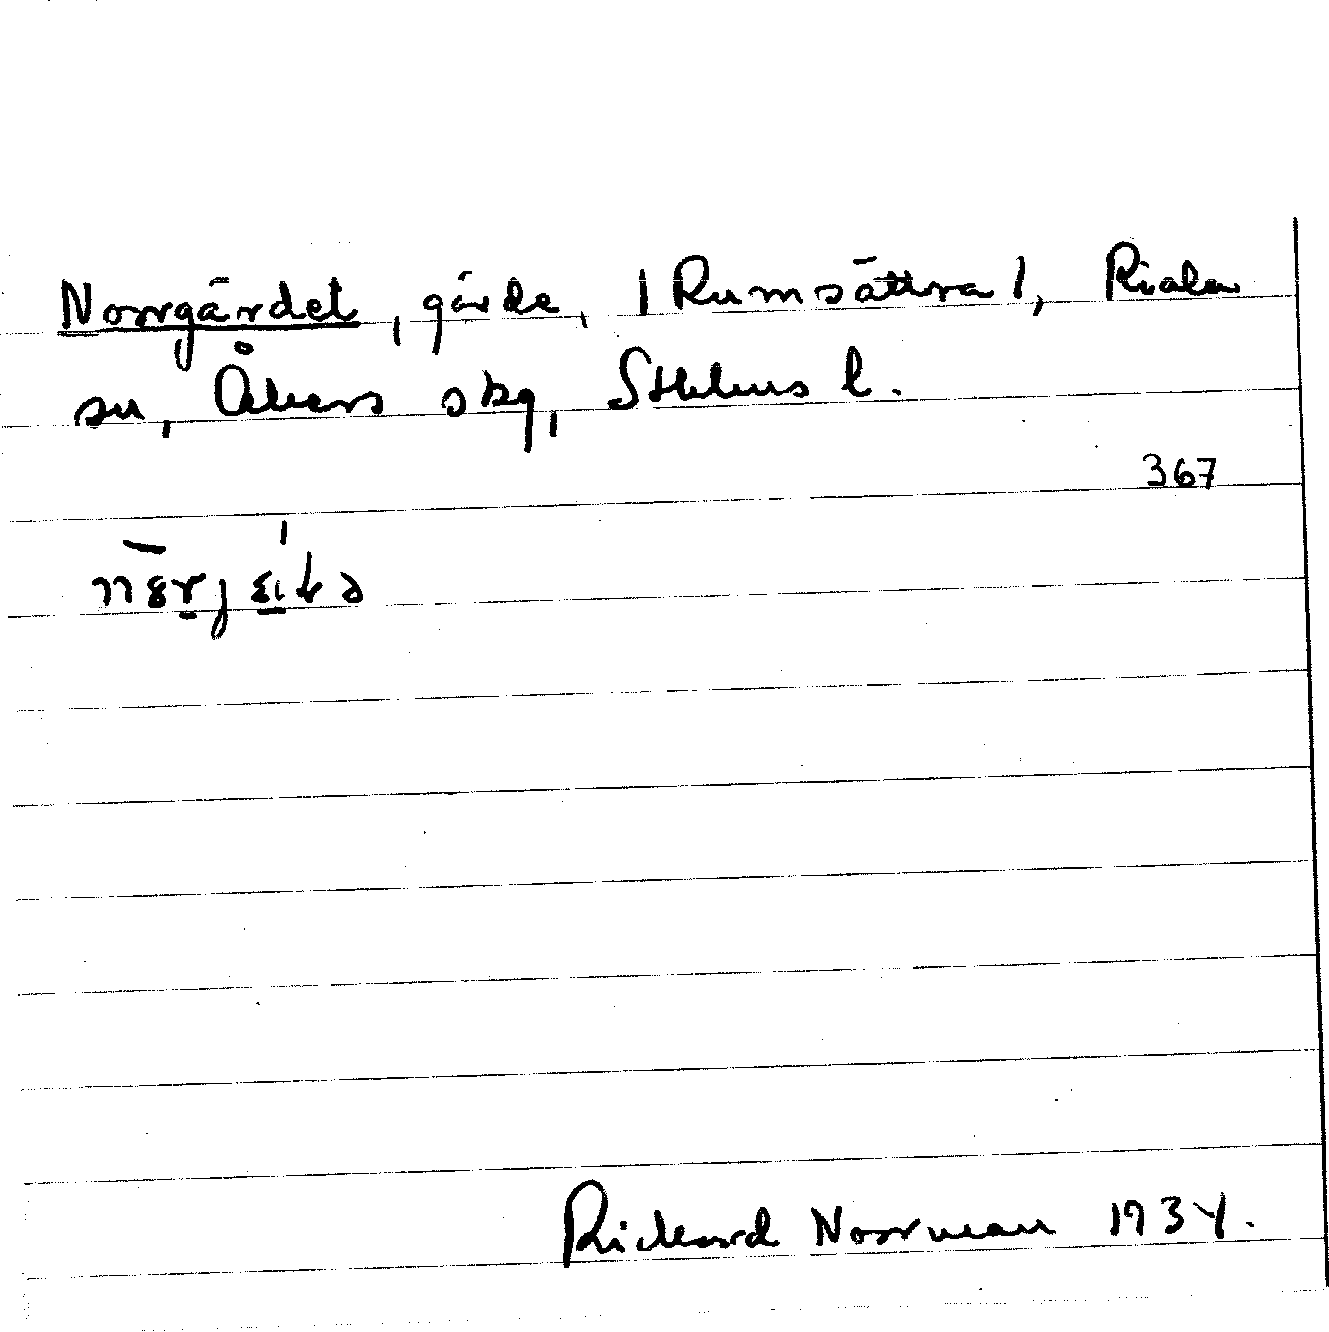 Norrgärdet, gärde, /Rumsättra/, Riala
sn, Åkers skg, Sthlms l.
367
Rickard Norrman 1934.